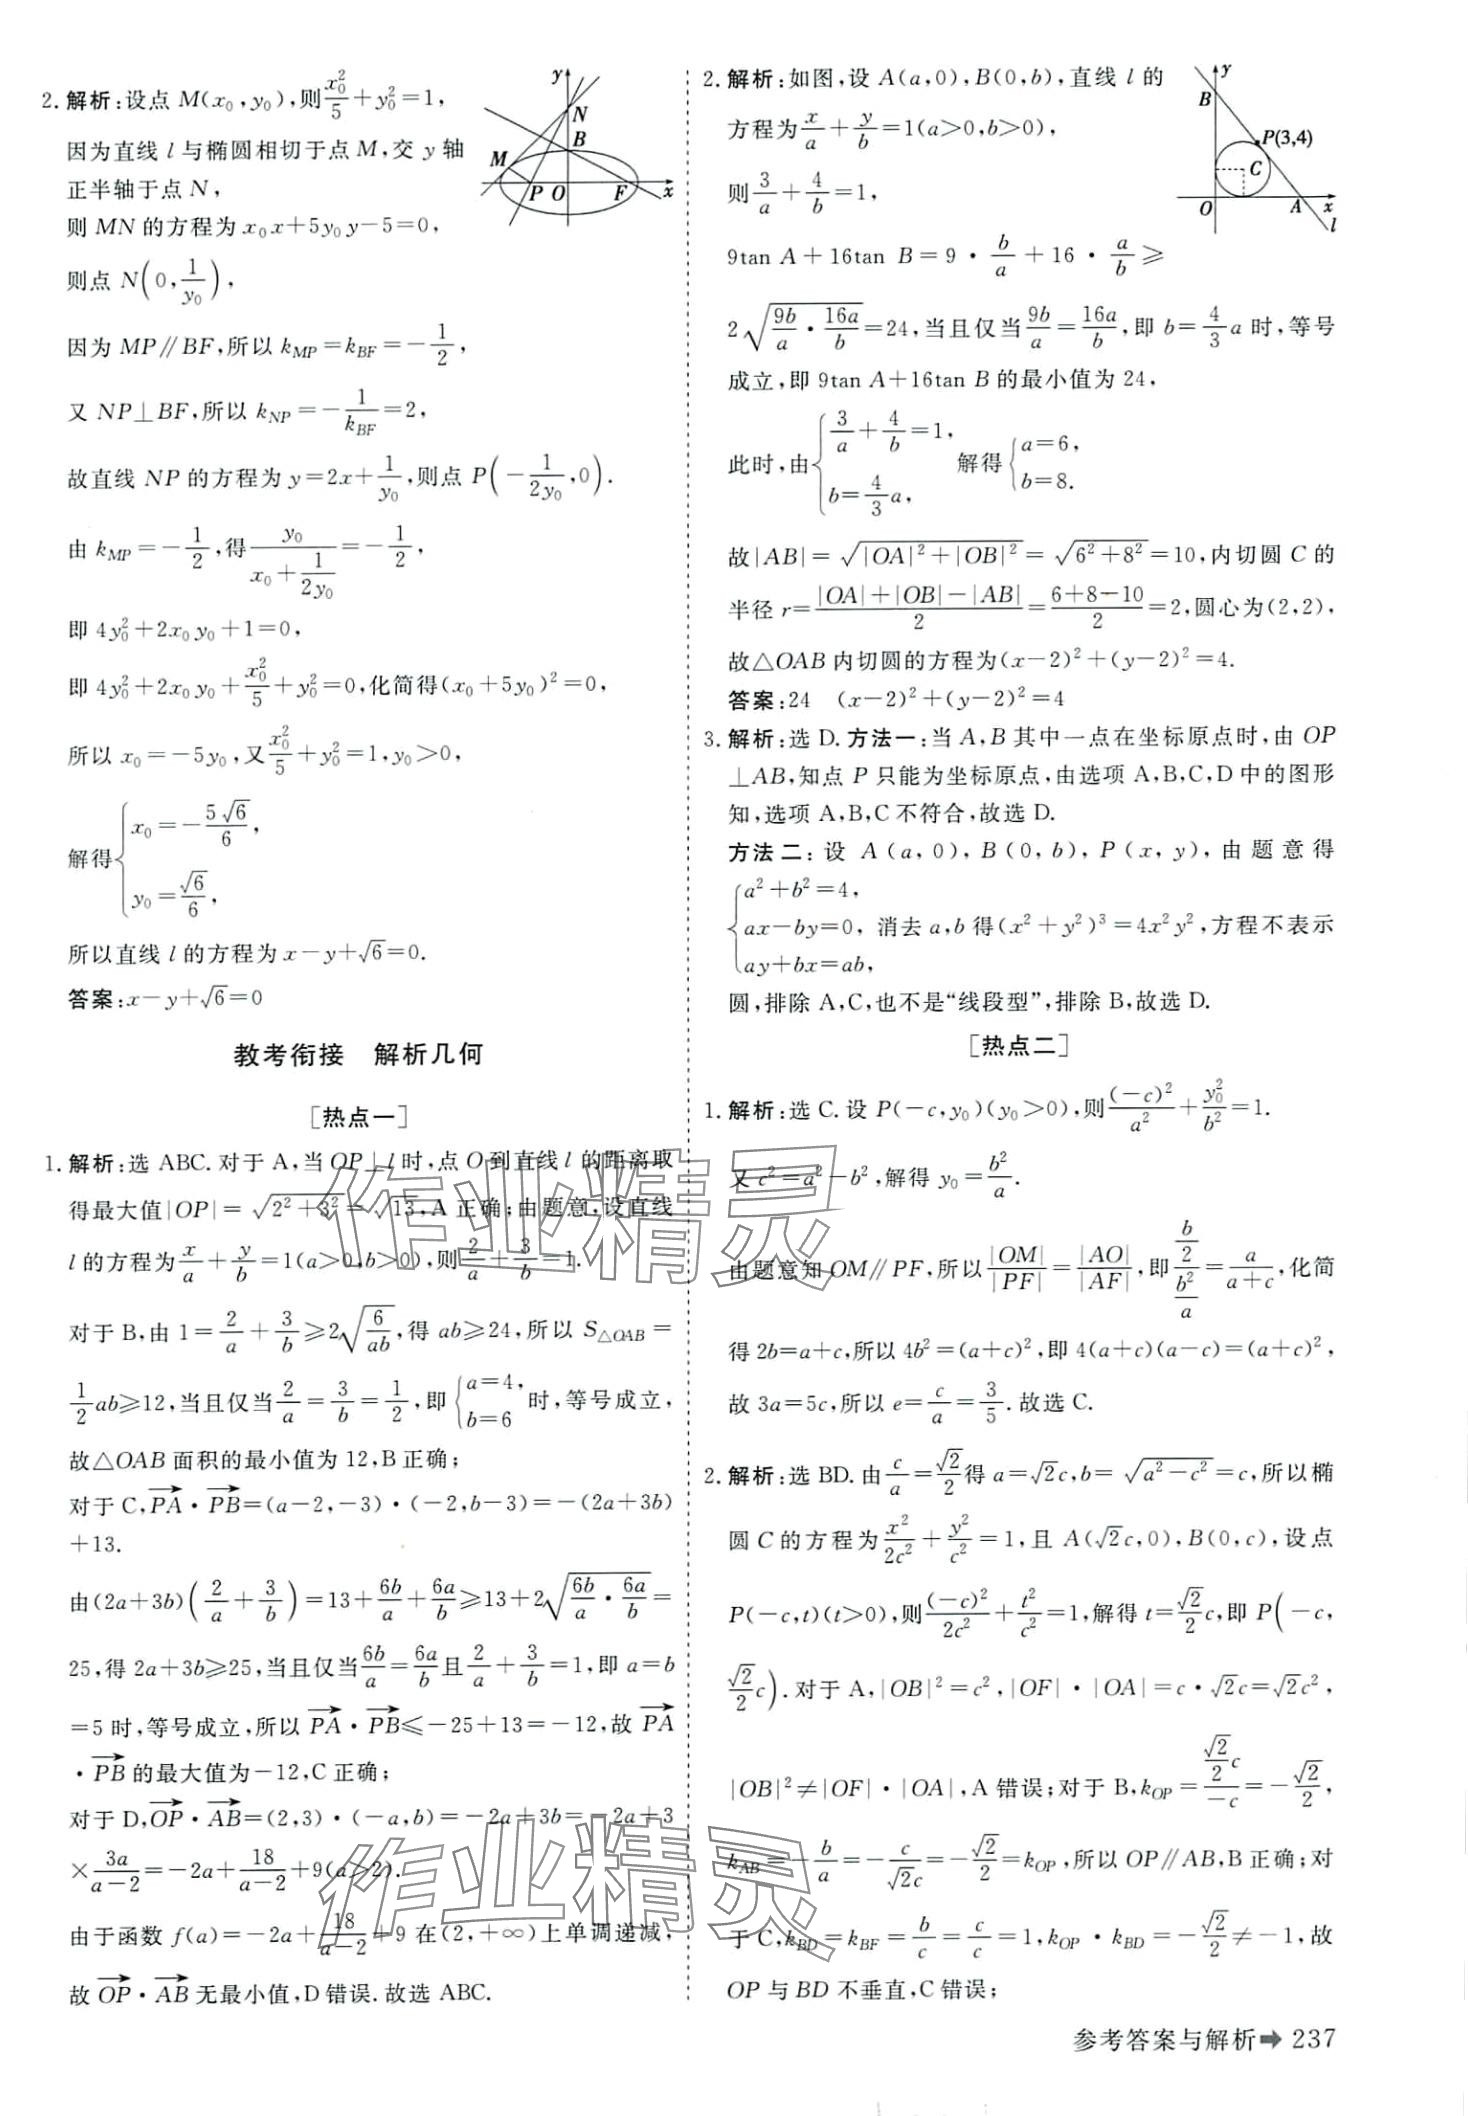 2. 解析:设点 M(x₀,y₀),则x₀²/5+y₀²=1,
因为直线 l 与椭圆相切于点 M,交 y 轴
正半轴于点 N,
则 MN 的方程为 x₀x+5y₀y-5=0,
则点 N(0,1/y₀),
因为 MP∥BF,所以 k_MP=k_BF=-1/2,
又 NP⊥BF,所以 k_NP=-1/k_BF=2,
故直线 NP 的方程为 y=2x+1/y₀,则点 P(-1/(2y₀),0).
由 k_MP=-1/2,得 y₀/(x₀+1/(2y₀))=-1/2,
即 4y₀²+2x₀y₀+1=0,
即 4y₀²+2x₀y₀+x₀²/5+y₀²=0,化简得(x₀+5y₀)²=0,
所以 x₀=-5y₀,又x₀²/5+y₀²=1,y₀>0,
解得{x₀=-5√6/6,
y₀=√6/6,
所以直线 l 的方程为 x-y+√6=0.
答案:x-y+√6=0
y
N
B
M
P O F x
教考衔接 解析几何
[热点一]
1. 解析:选 ABC.对于 A,当 OP⊥l 时,点 O 到直线 l 的距离取
得最大值|OP|=√(2²+3²)=√13,A 正确;由题意,设直线
l 的方程为x/a+y/b=1(a>0,b>0),则2/a+3/b=1.
对于 B,由 1=2/a+3/b≥2√(6/ab),得 ab≥24,所以 S△OAB=
1/2ab≥12,当且仅当2/a=3/b=1/2,即{a=4,b=6时,等号成立,
故△OAB 面积的最小值为 12,B 正确;
对于 C,PA→·PB→=(a-2,-3)·(-2,b-3)=-(2a+3b)
+13.
由(2a+3b)(2/a+3/b)=13+6b/a+6a/b≥13+2√(6b/a·6a/b)=
25,得 2a+3b≥25,当且仅当6b/a=6a/b且2/a+3/b=1,即 a=b
=5 时,等号成立,所以 PA→·PB→≤-25+13=-12,故 PA→
·PB→的最大值为-12,C 正确;
对于 D,OP→·AB→=(2,3)·(-a,b)=-2a+3b=-2a+3
×3a/(a-2)=-2a+18/(a-2)+9(a>2).
由于函数 f(a)=-2a+18/(a-2)+9 在(2,+∞)上单调递减,
故 OP→·AB→无最小值,D 错误.故选 ABC.
2. 解析:如图,设 A(a,0),B(0,b),直线 l 的
方程为x/a+y/b=1(a>0,b>0),
则3/a+4/b=1,
9tan A+16tan B=9·b/a+16·a/b≥
2√(9b/a·16a/b)=24,当且仅当9b/a=16a/b,即 b=4/3a 时,等号
成立,即 9tan A+16tan B 的最小值为 24,
此时,由{3/a+4/b=1,b=4/3a,解得{a=6,b=8.
故|AB|=√(|OA|²+|OB|²)=√(6²+8²)=10,内切圆 C 的
半径 r=(|OA|+|OB|-|AB|)/2=(6+8-10)/2=2,圆心为(2,2),
故△OAB 内切圆的方程为(x-2)²+(y-2)²=4.
答案:24 (x-2)²+(y-2)²=4
y
B
P(3,4)
C
O A x
l
3. 解析:选 D.方法一:当 A,B 其中一点在坐标原点时,由 OP
⊥AB,知点 P 只能为坐标原点,由选项 A,B,C,D 中的图形
知,选项 A,B,C 不符合,故选 D.
方法二:设 A(a,0),B(0,b),P(x,y),由题意得
{a²+b²=4,
ax-by=0, 消去 a,b 得(x²+y²)³=4x²y²,方程不表示
ay+bx=ab,
圆,排除 A,C,也不是“线段型”,排除 B,故选 D.
[热点二]
1. 解析:选 C.设 P(-c,y₀)(y₀>0),则(-c)²/a²+y₀²/b²=1.
又 c²=a²-b²,解得 y₀=b²/a.
由题意知 OM∥PF,所以|OM|/|PF|=|AO|/|AF|,即(b/2)/(b²/a)=a/(a+c),化简
得 2b=a+c,所以 4b²=(a+c)²,即 4(a+c)(a-c)=(a+c)²,
故 3a=5c,所以 e=c/a=3/5.故选 C.
2. 解析:选 BD.由c/a=√2/2得 a=√2c,b=√(a²-c²)=c,所以椭
圆 C 的方程为x²/2c²+y²/c²=1,且 A(√2c,0),B(0,c),设点
P(-c,t)(t>0),则(-c)²/2c²+t²/c²=1,解得 t=√2/2c,即 P(-c,
√2/2c).对于 A,|OB|²=c²,|OF|·|OA|=c·√2c=√2c²,
|OB|²≠|OF|·|OA|,A 错误;对于 B,k_OP=(√2/2c)/(-c)=-√2/2,
k_AB=-b/a=-c/(√2c)=-√2/2=k_OP,所以 OP∥AB,B 正确;对
于 C,k_BD=k_BF=b/c=c/c=1,k_OP·k_BD=-√2/2≠-1,故
OP 与 BD 不垂直,C 错误;
作业精灵
作业精灵
参考答案与解析➡237